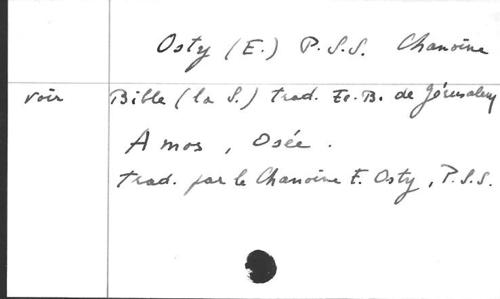 Osty (E.) P.S.S. Chanoine
voir Bible (la S.) trad. Ec. B. de Jérusalem
Amos, Osée.
trad. par le Chanoine E. Osty, P.S.S.